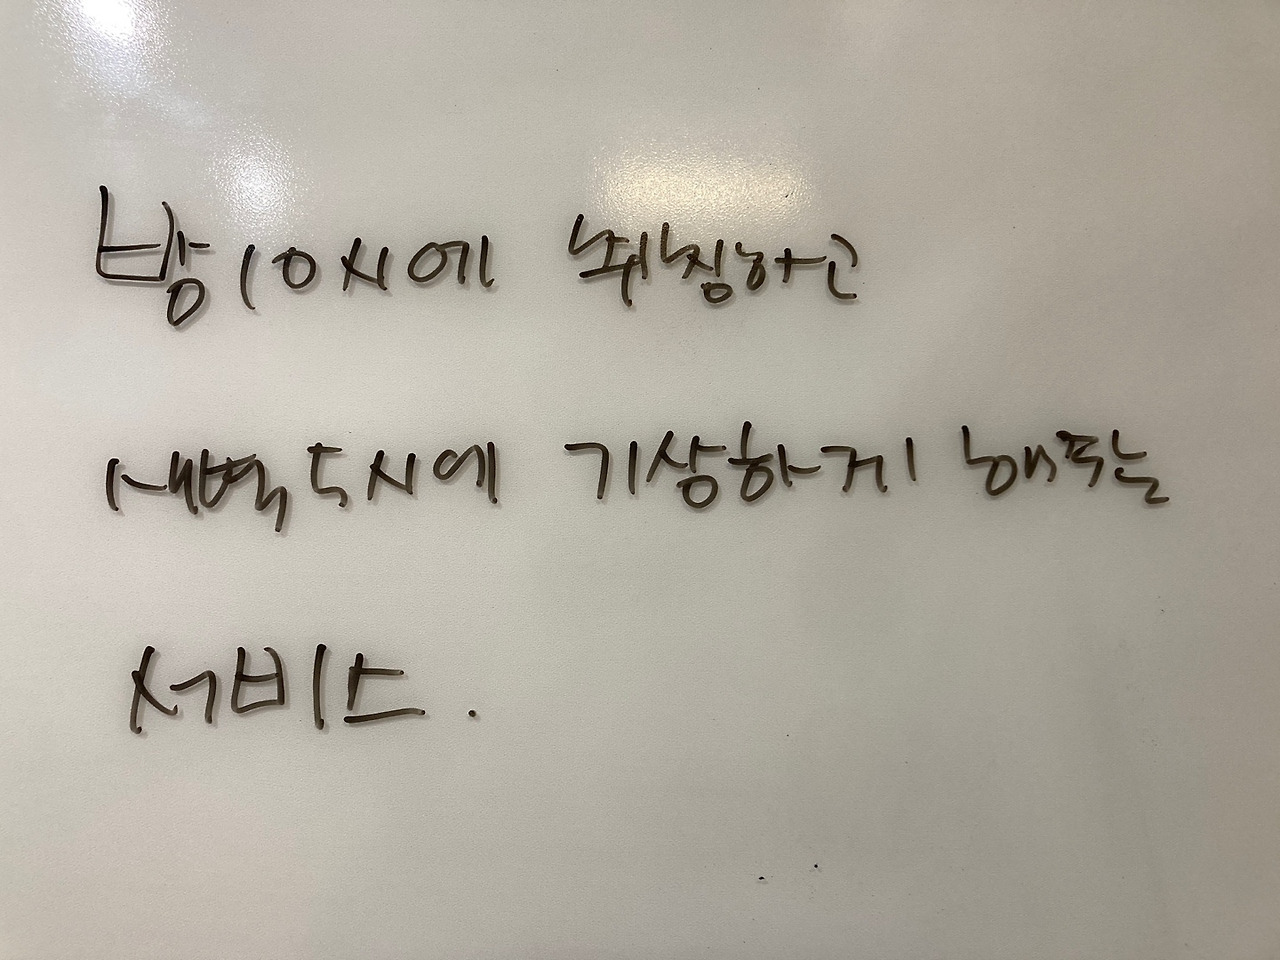 밤 10시에 취침하고
새벽 5시에 기상하게 해주는
서비스.